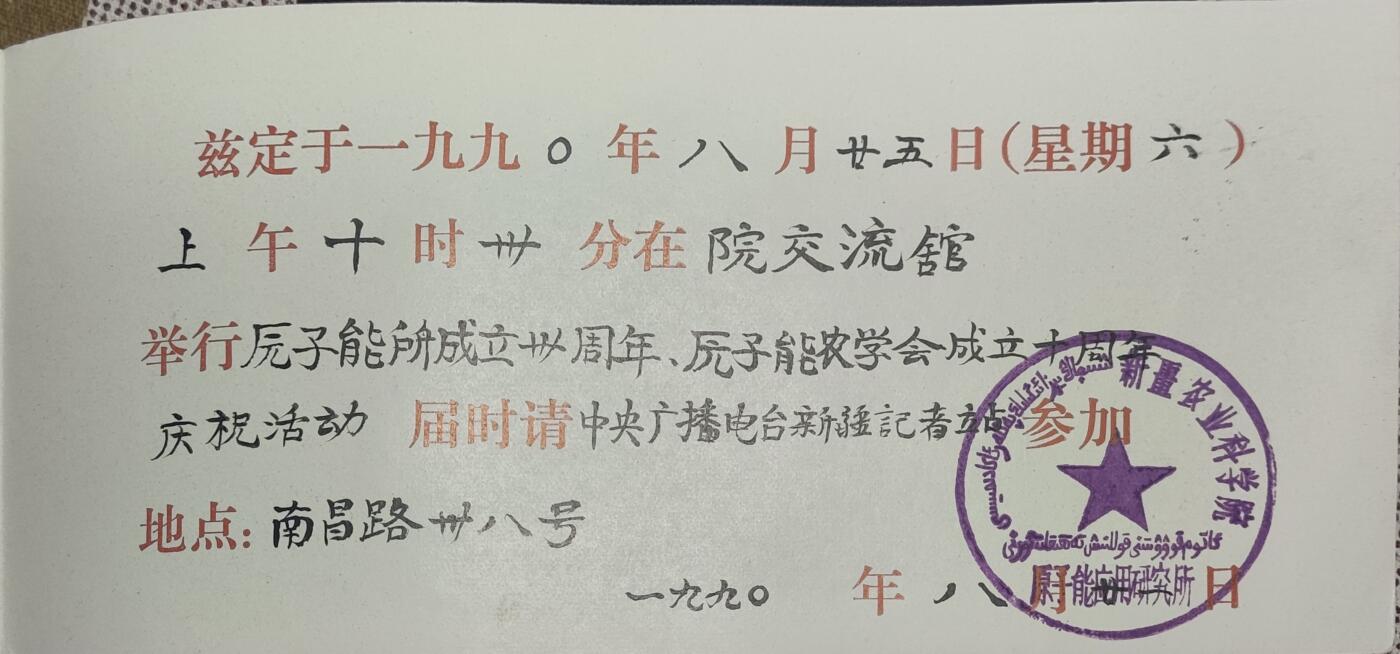 兹定于一九九〇年八月廿五日(星期六)
上午十时卅分在院交流舘
举行原子能所成立卅周年、原子能农学会成立十周年
庆祝活动 届时请中央广播电台新疆記者站参加
地点:南昌路卅八号
一九九〇年八月日
新疆农业科学院
原子能应用研究所